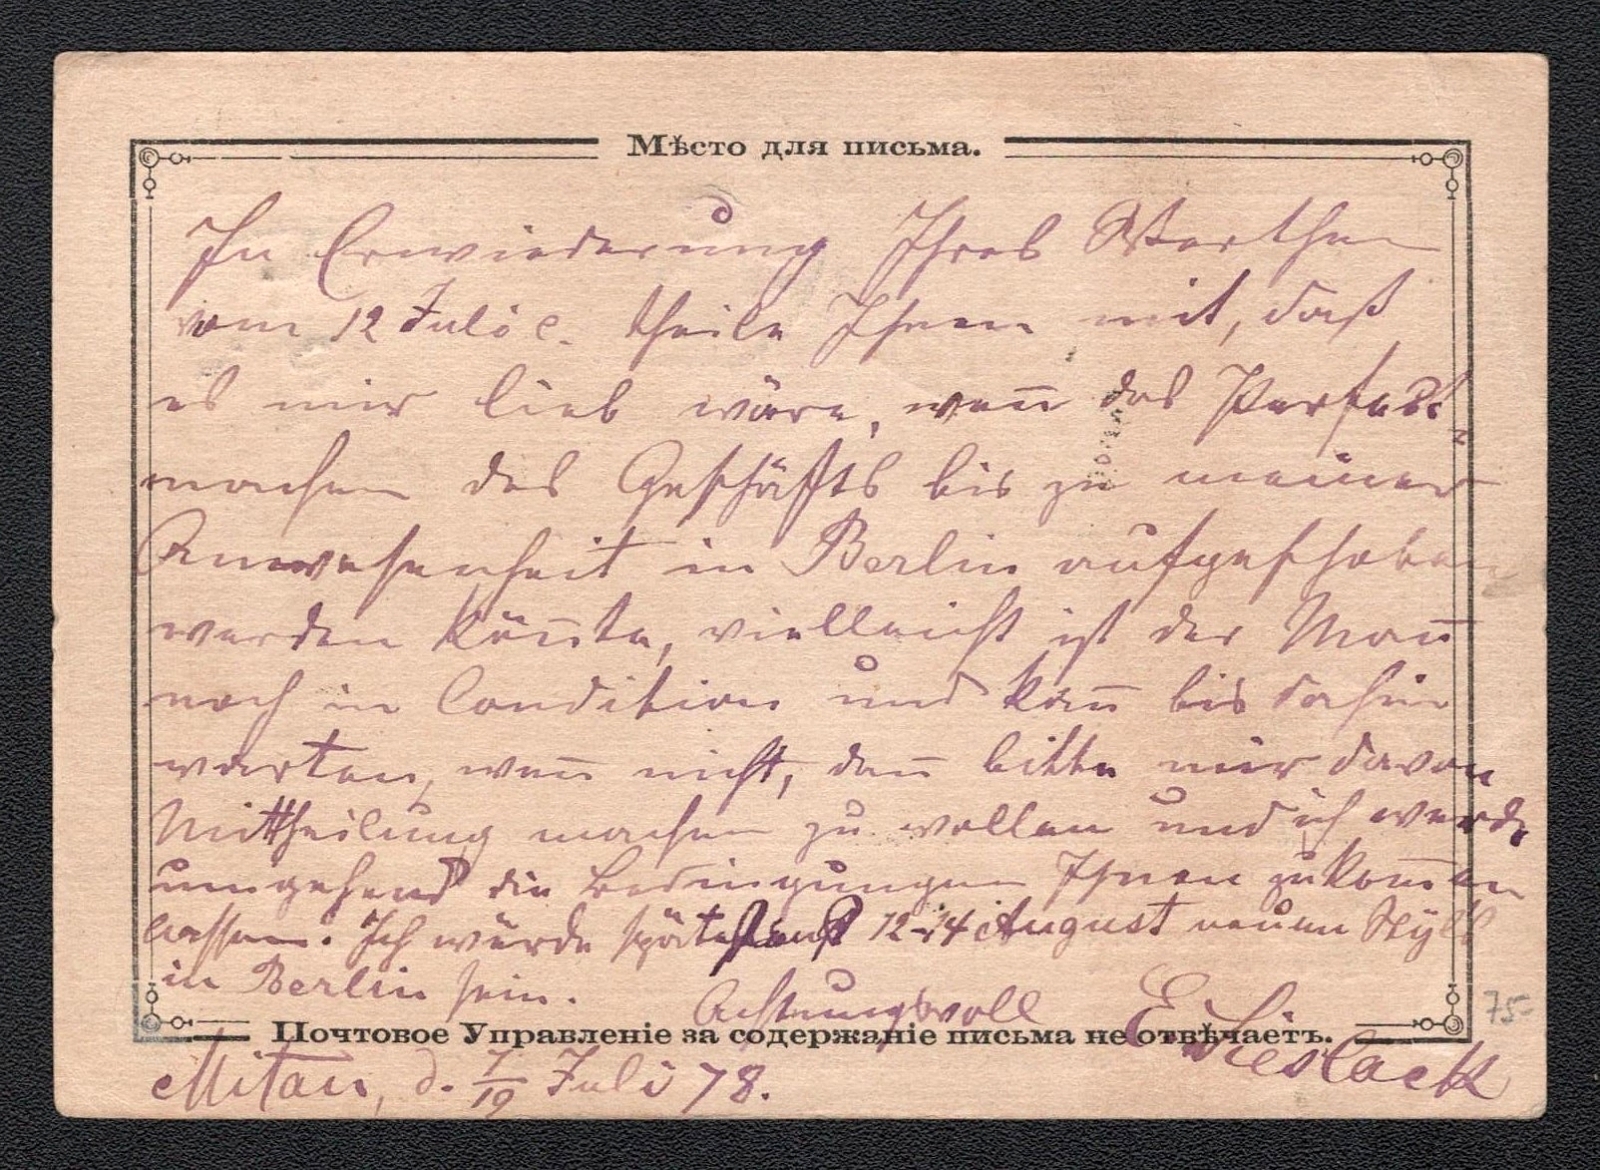 Мѣсто для письма.
In Erwiederung Ihres Werthen
vom 12 Juli c. theile Ihnen mit, daß
es mir lieb wäre, wen̅ das Perfect-
machen des Geschäfts bis zu meiner
Anwesenheit in Berlin aufgeschoben
werden kön̅te, vielleicht ist der Man̅
noch in Condition und kan̅ bis dahin
warten, wen̅ nicht, dan̅ bitte mir davon
Mittheilung machen zu wollen und ich werde
umgehend die Bedingungen Ihnen zukom̅en
lassen. Ich würde spätestens 12-14 August neuen Styls
in Berlin sein.
Achtungsvoll
Почтовое Управленіе за содержаніе письма не отвѣчаетъ.
E. Lieslack
Mitau, d. 7/19 Juli 78.
75-